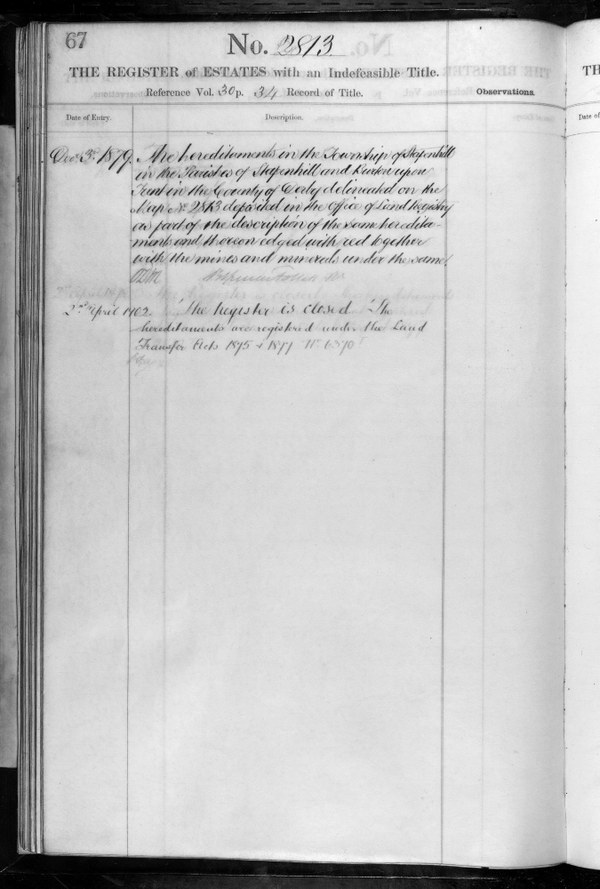 67
No. 2813
THE REGISTER of ESTATES with an Indefeasible Title.
Reference Vol. 30 p. 34 Record of Title.
Observations.
Date of Entry.
Description.
Decr. 3rd 1879. The hereditaments in the Township of Stapenhill
in the Parishes of Stapenhill and Burton upon
Trent in the County of Derby delineated on the
Map No. 2813 deposited in the Office of Land Registry
as part of the description of the same heredita-
ments and thereon edged with red together
with the mines and minerals under the same.
2nd April 1902. The Register is closed. The
hereditaments are registered under the Land
Transfer Acts 1875 & 1897
TH
Date of